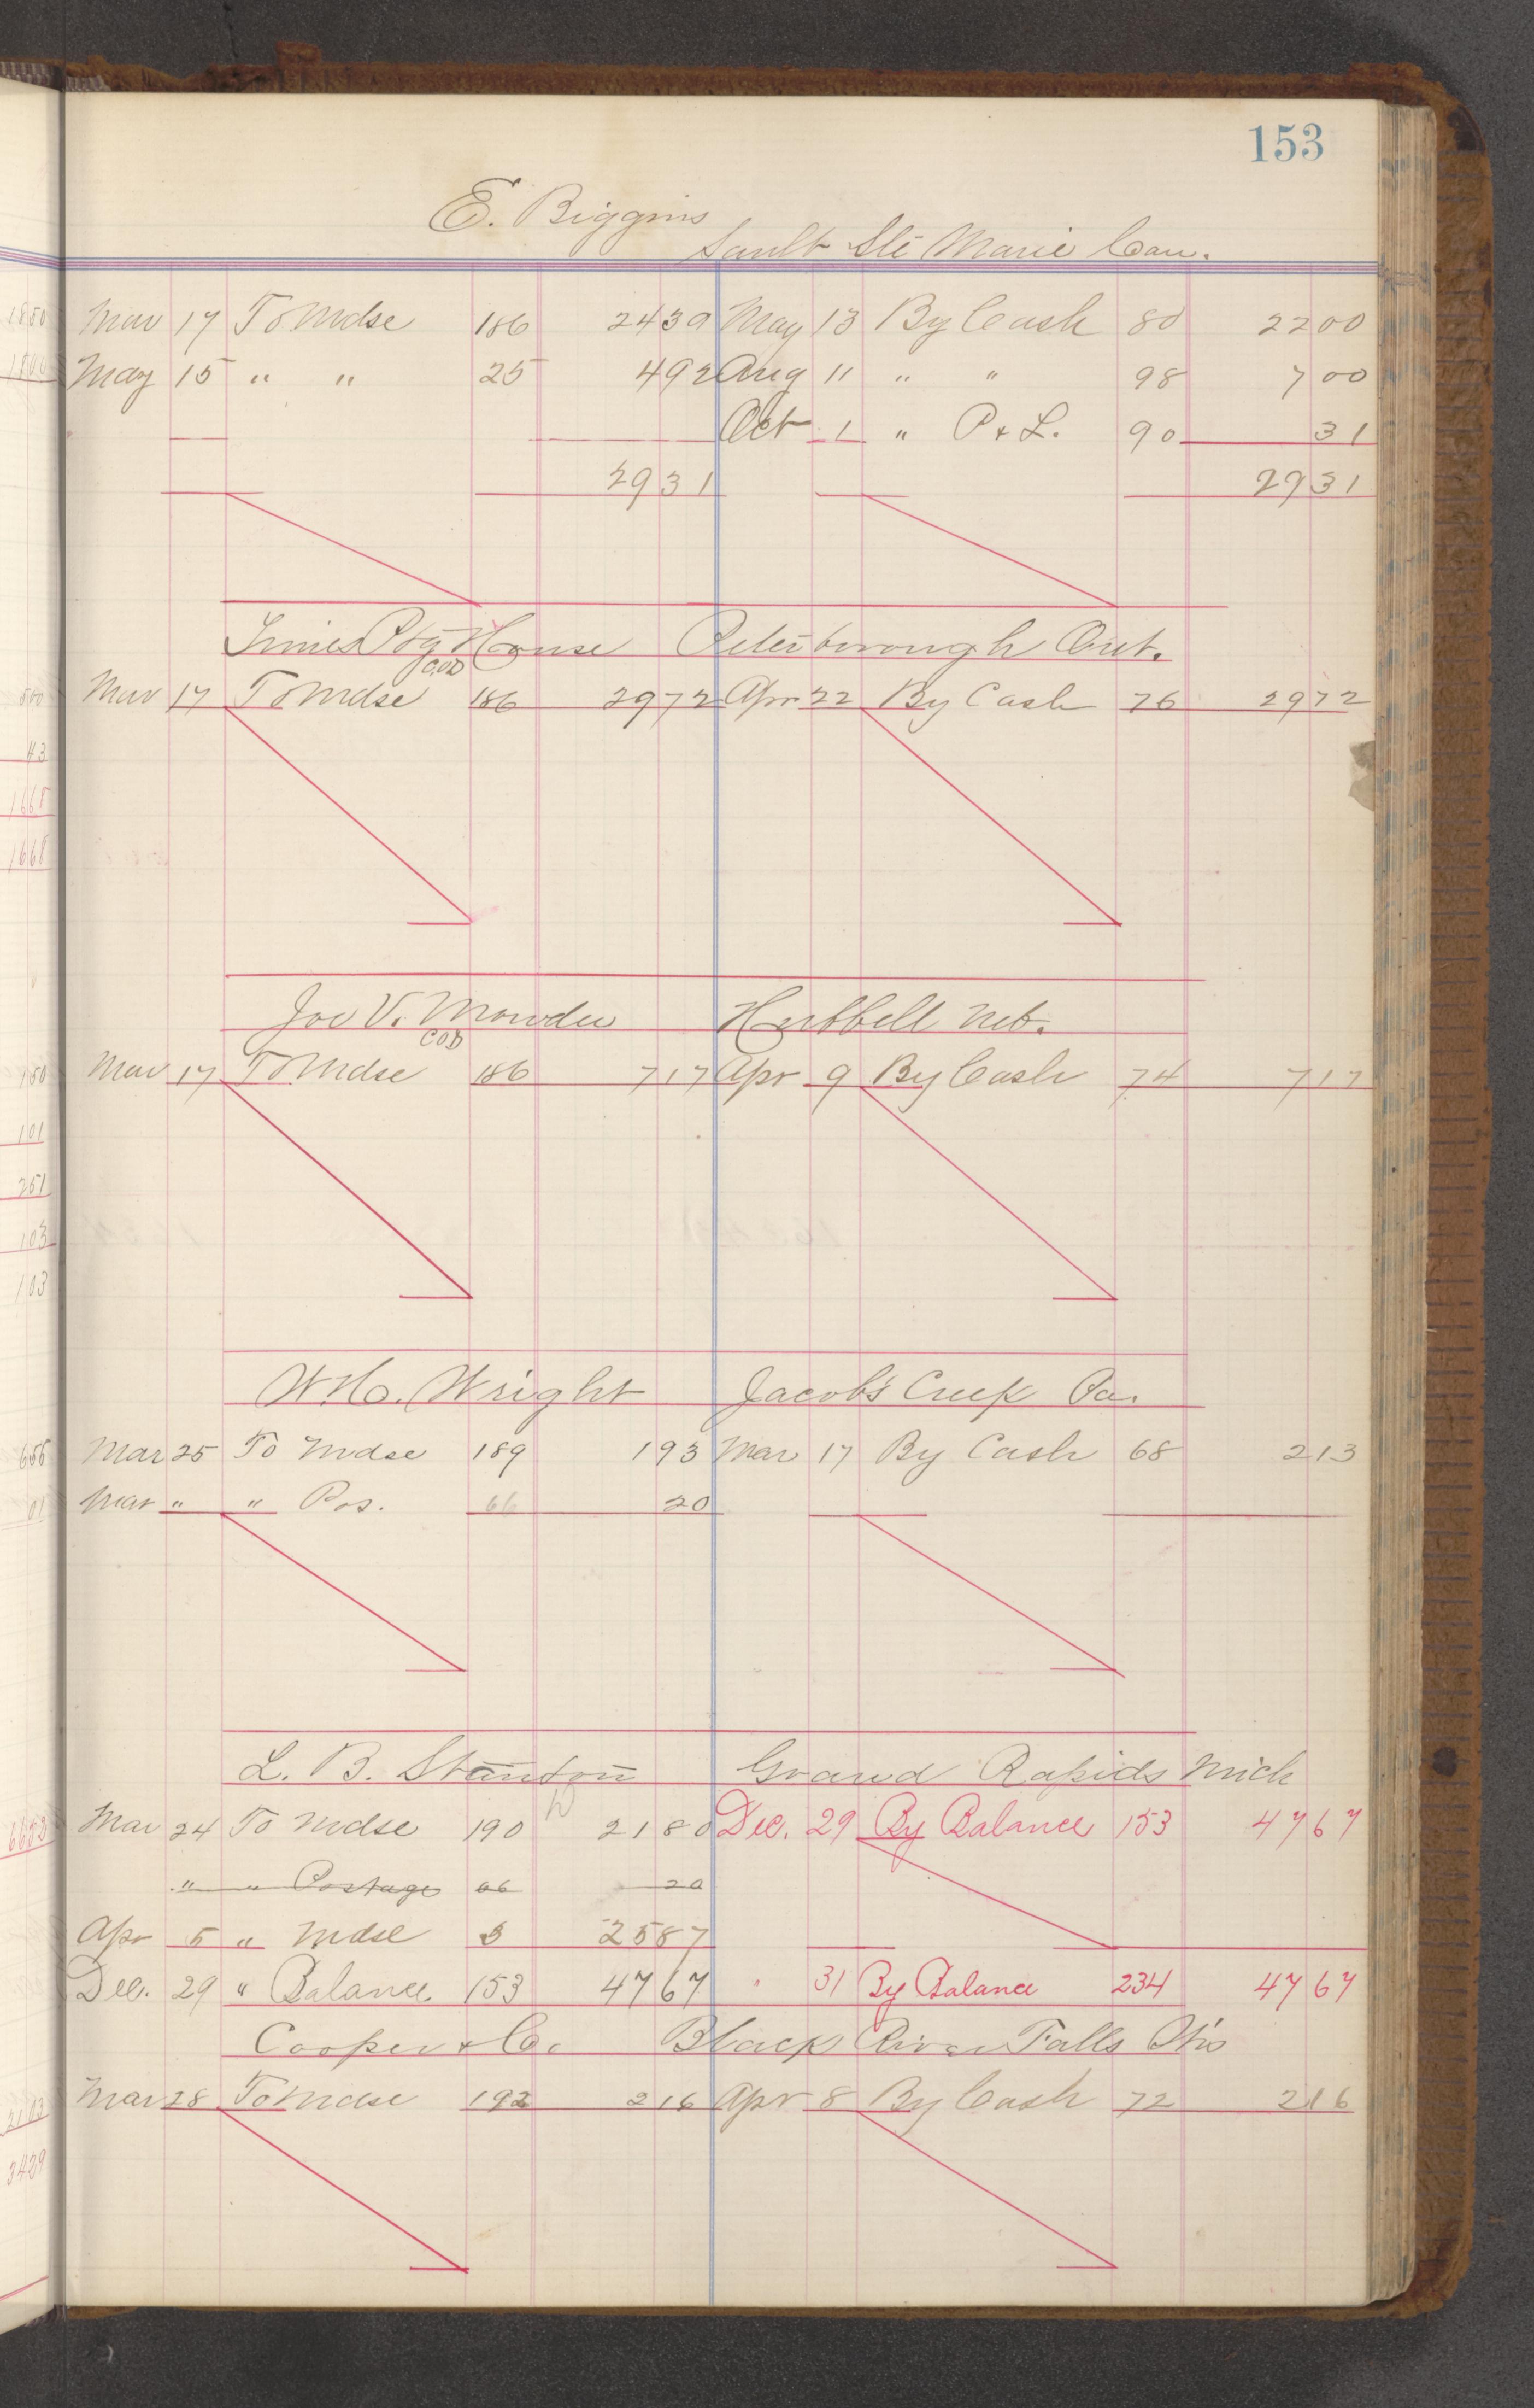 153
E. Biggins
Sault Ste Marie Can.
Mar 17 To Mdse 186 2439 May 13 By Cash 80 2200
May 15 " " 25 492 Aug 11 " " 98 700
Oct 1 " P & L. 90 31
2931 2931
Times Ptg House Peterborough Ont.
COD
Mar 17 To Mdse 186 2972 Apr 22 By Cash 76 2972
Joe V. Mowder Hubbell Neb.
COD
Mar 17 To Mdse 186 717 Apr 9 By Cash 74 717
Wright Jacob's Creek Pa.
Mar 25 To Mdse 189 193 Mar 17 By Cash 68 213
Mar " " Pos. 66 20
L. B. Stanton Grand Rapids Mich
Mar 24 To Mdse 190 2180 Dec. 29 By Balance 153 4767
" " Postage 66 20
Apr 5 " Mdse 3 2587
Dec. 29 " Balance 153 4767 " 31 By Balance 234 4767
Cooper & Co. Black River Falls
Mar 28 To Mdse 192 216 Apr 8 By Cash 72 216